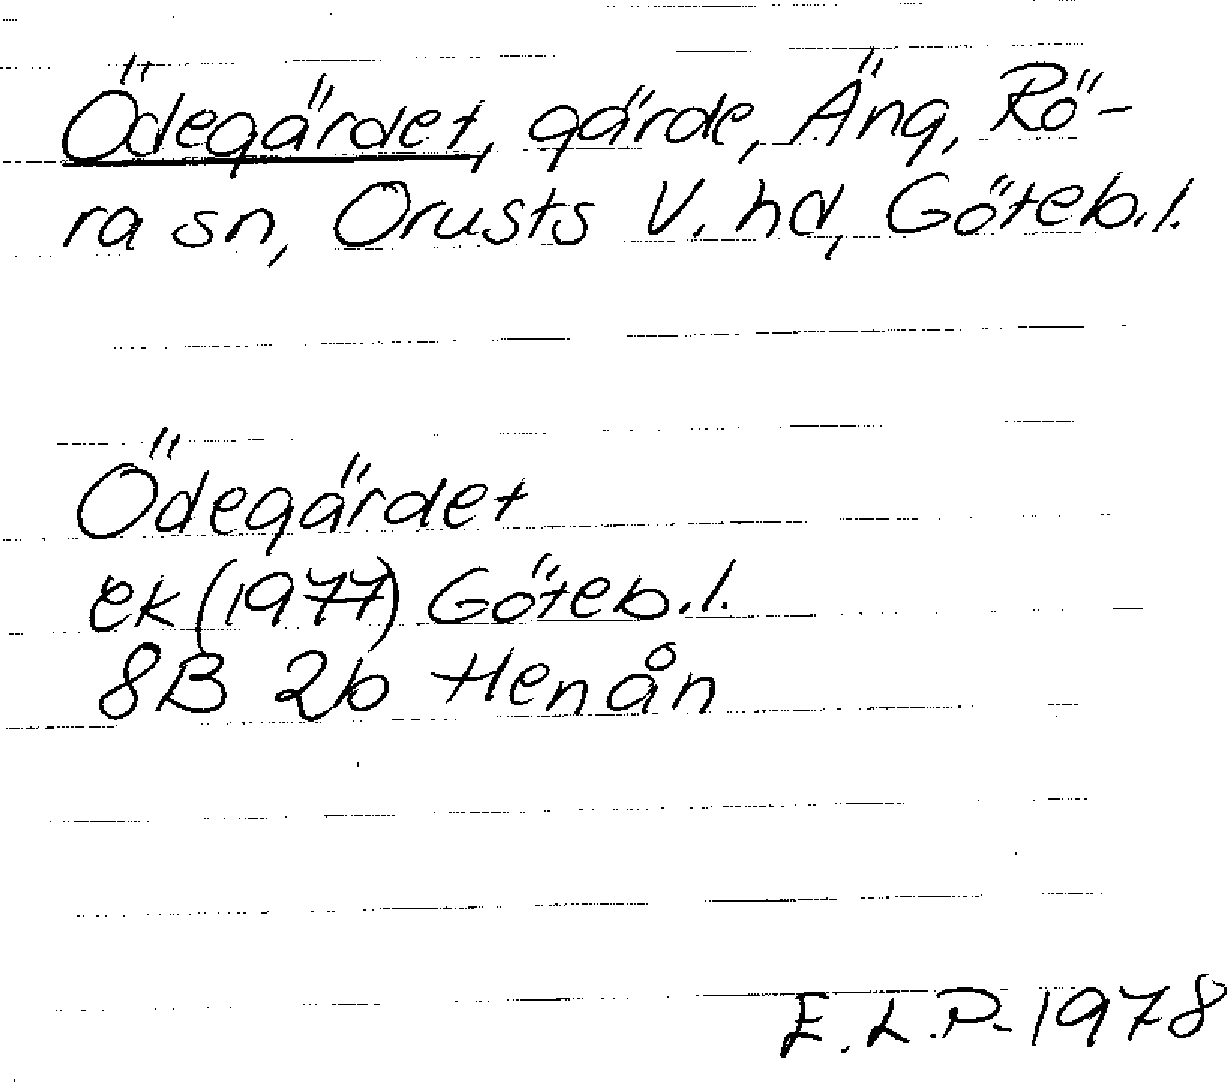 Ödegärdet, gärde, Äng, Rö-
ra sn, Orusts V. hd, Göteb.l.
Ödegärdet
ek (1977) Göteb.l.
8B 2b Henån
E.L.P. 1978